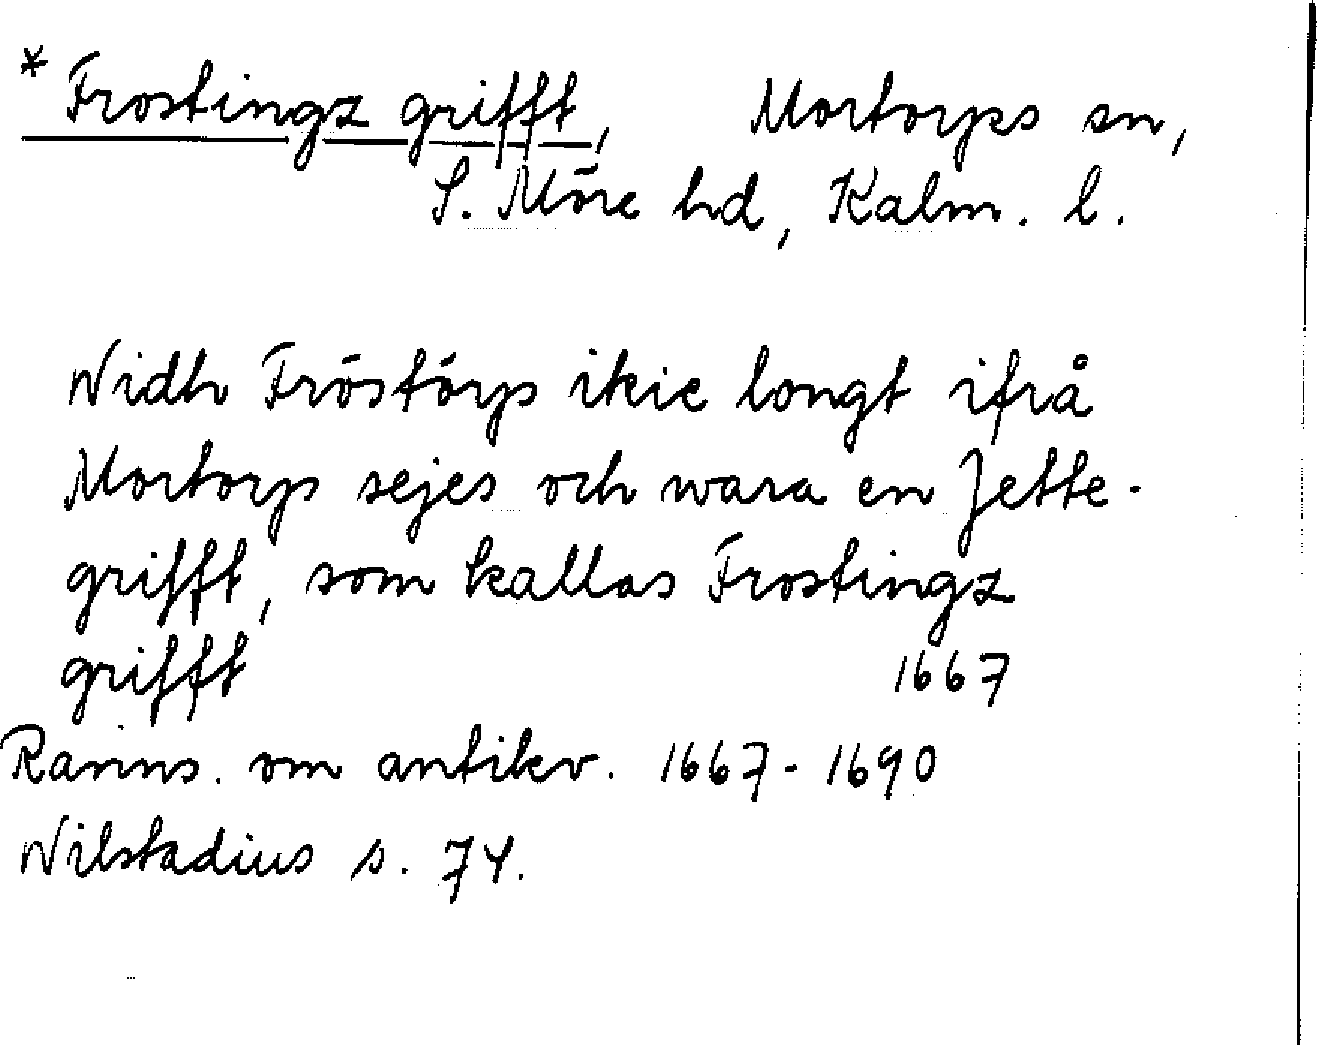 * Frostingz grifft, Mortorps sn,
S. Möre hd, Kalm. l.
Widh Fröstörp ikie longt ifrå
Mortorp sejes och wara en Jette-
grifft, som kallas Frostingz
grifft 1667
Ranns. om antikv. 1667-1690
Nilstadius s. 74.